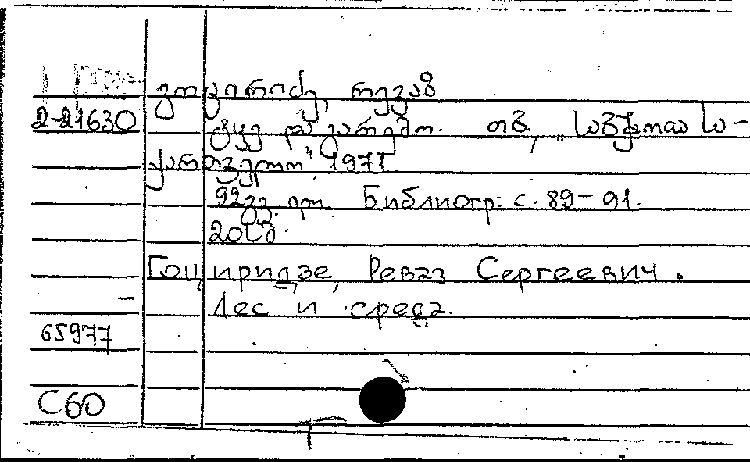 გოცირიძე, რევაზ
2-21630
ტყე და გარემო. თბ., „საბჭოთა სა-
ქართველო", 1977.
92 გვ. ილ. Библиогр: с. 89-91.
20სმ.
Гоциридзе, Реваз Сергеевич.
Лес и среда.
65977
С60